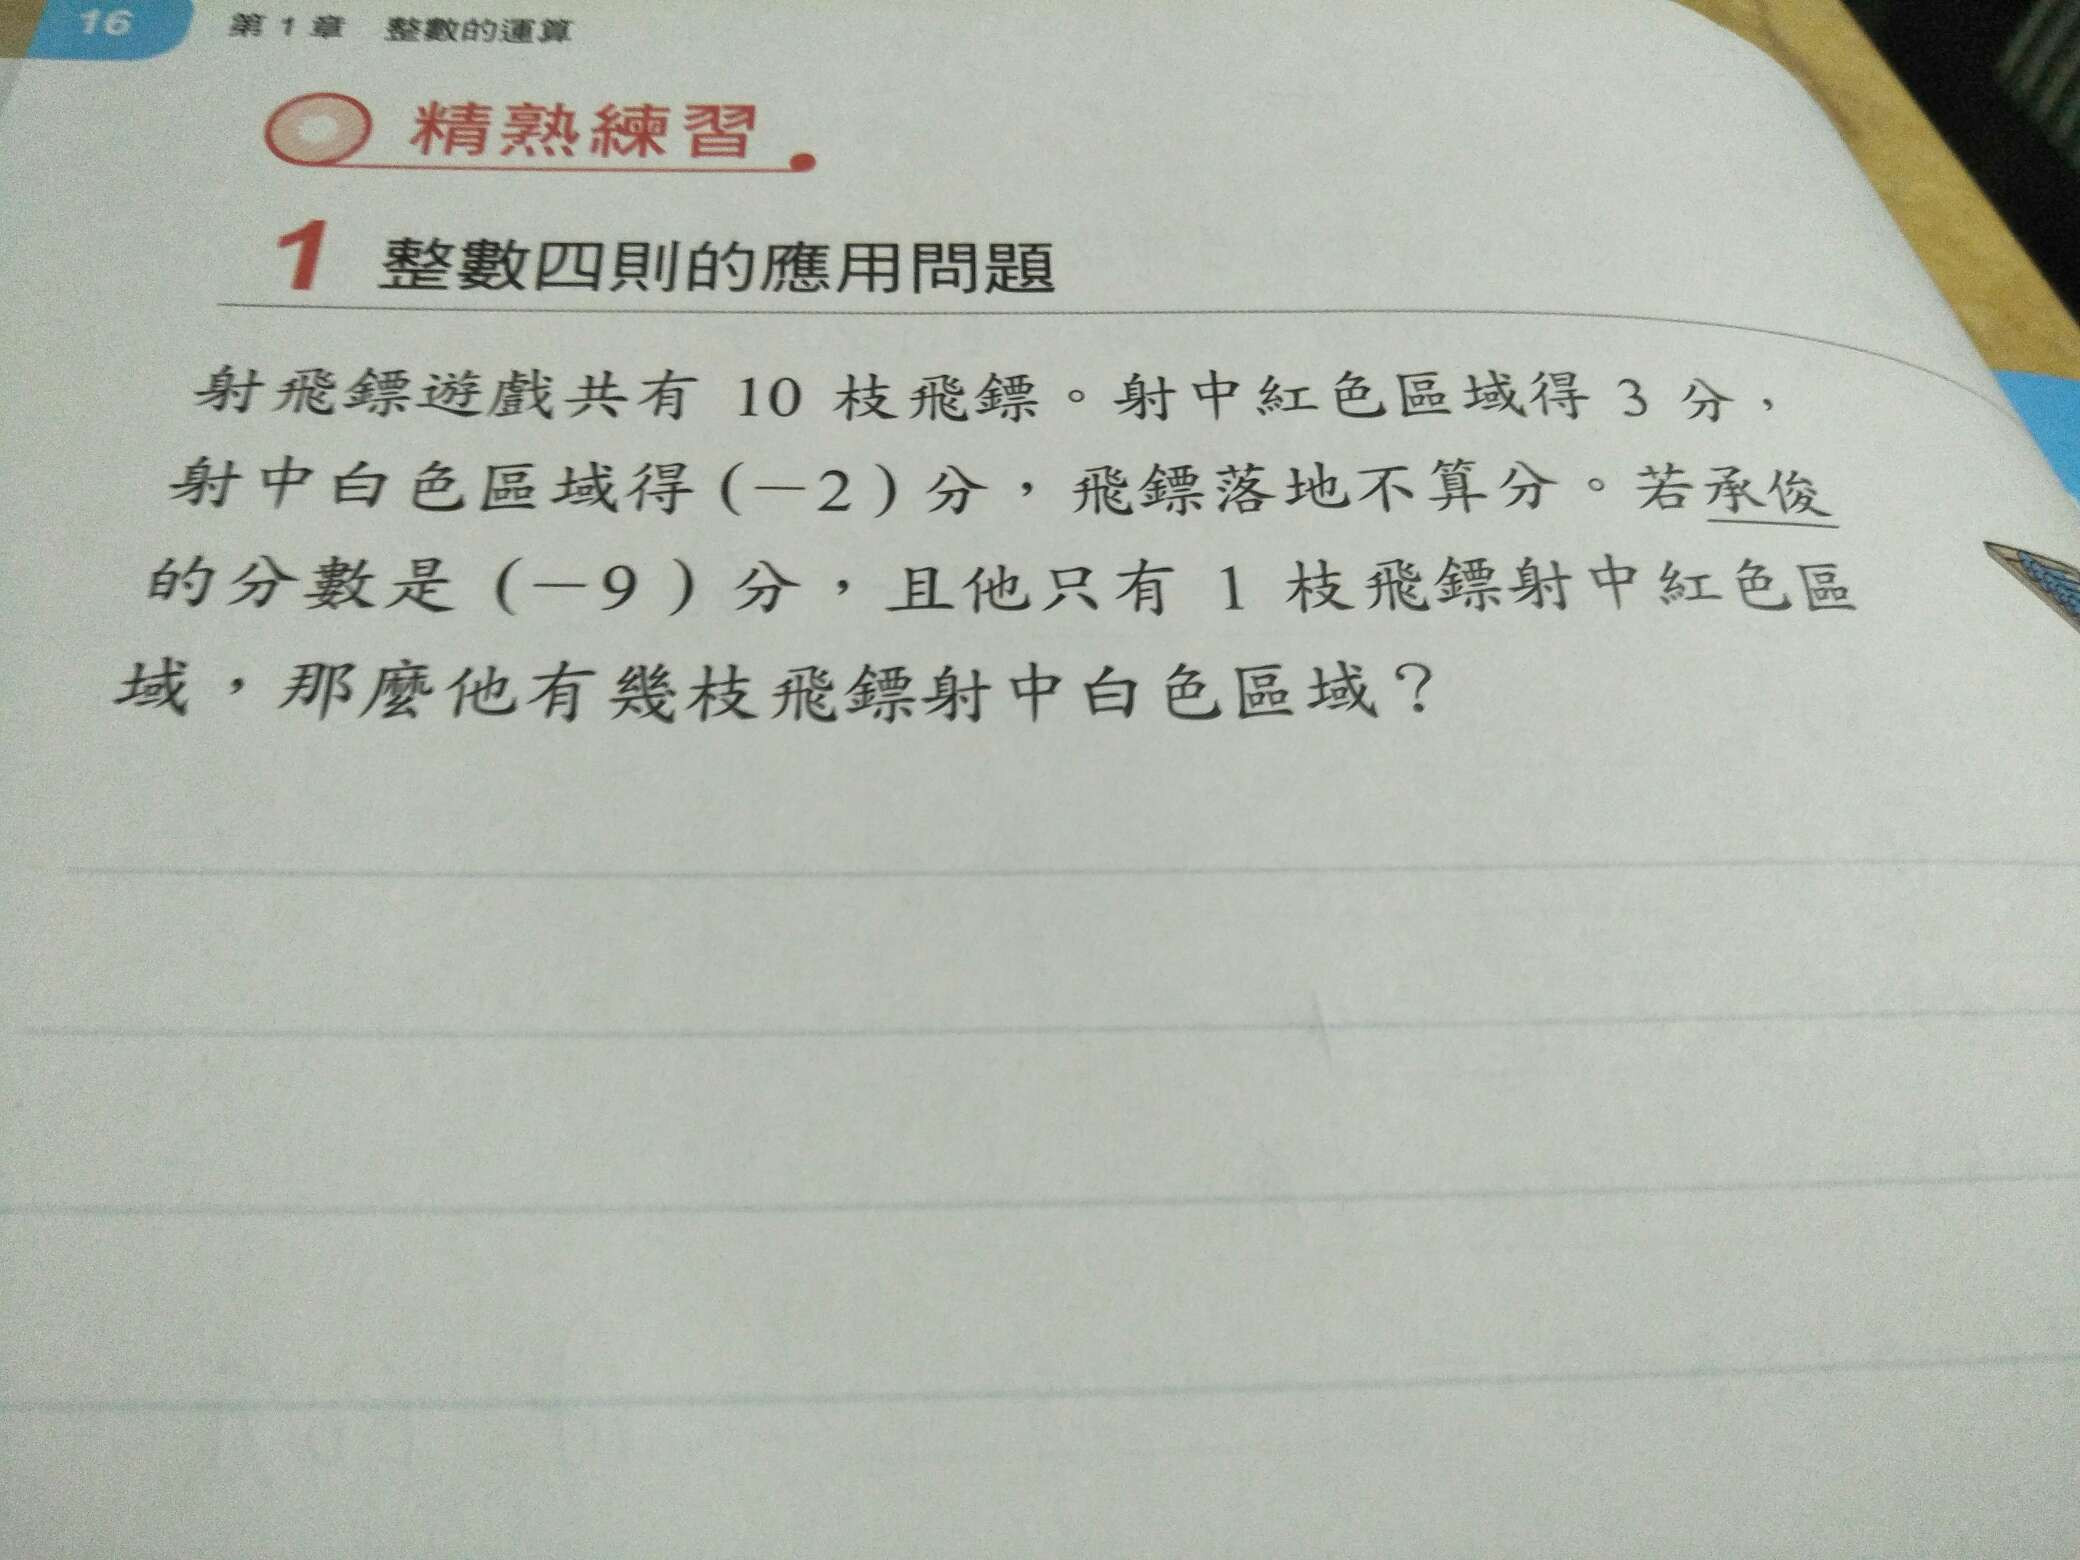 16 第 1 章 整數的運算
精熟練習
1 整數四則的應用問題
射飛鏢遊戲共有 10 枝飛鏢。射中紅色區域得 3 分，
射中白色區域得(－2)分，飛鏢落地不算分。若承俊
的分數是(－9)分，且他只有 1 枝飛鏢射中紅色區
域，那麼他有幾枝飛鏢射中白色區域？